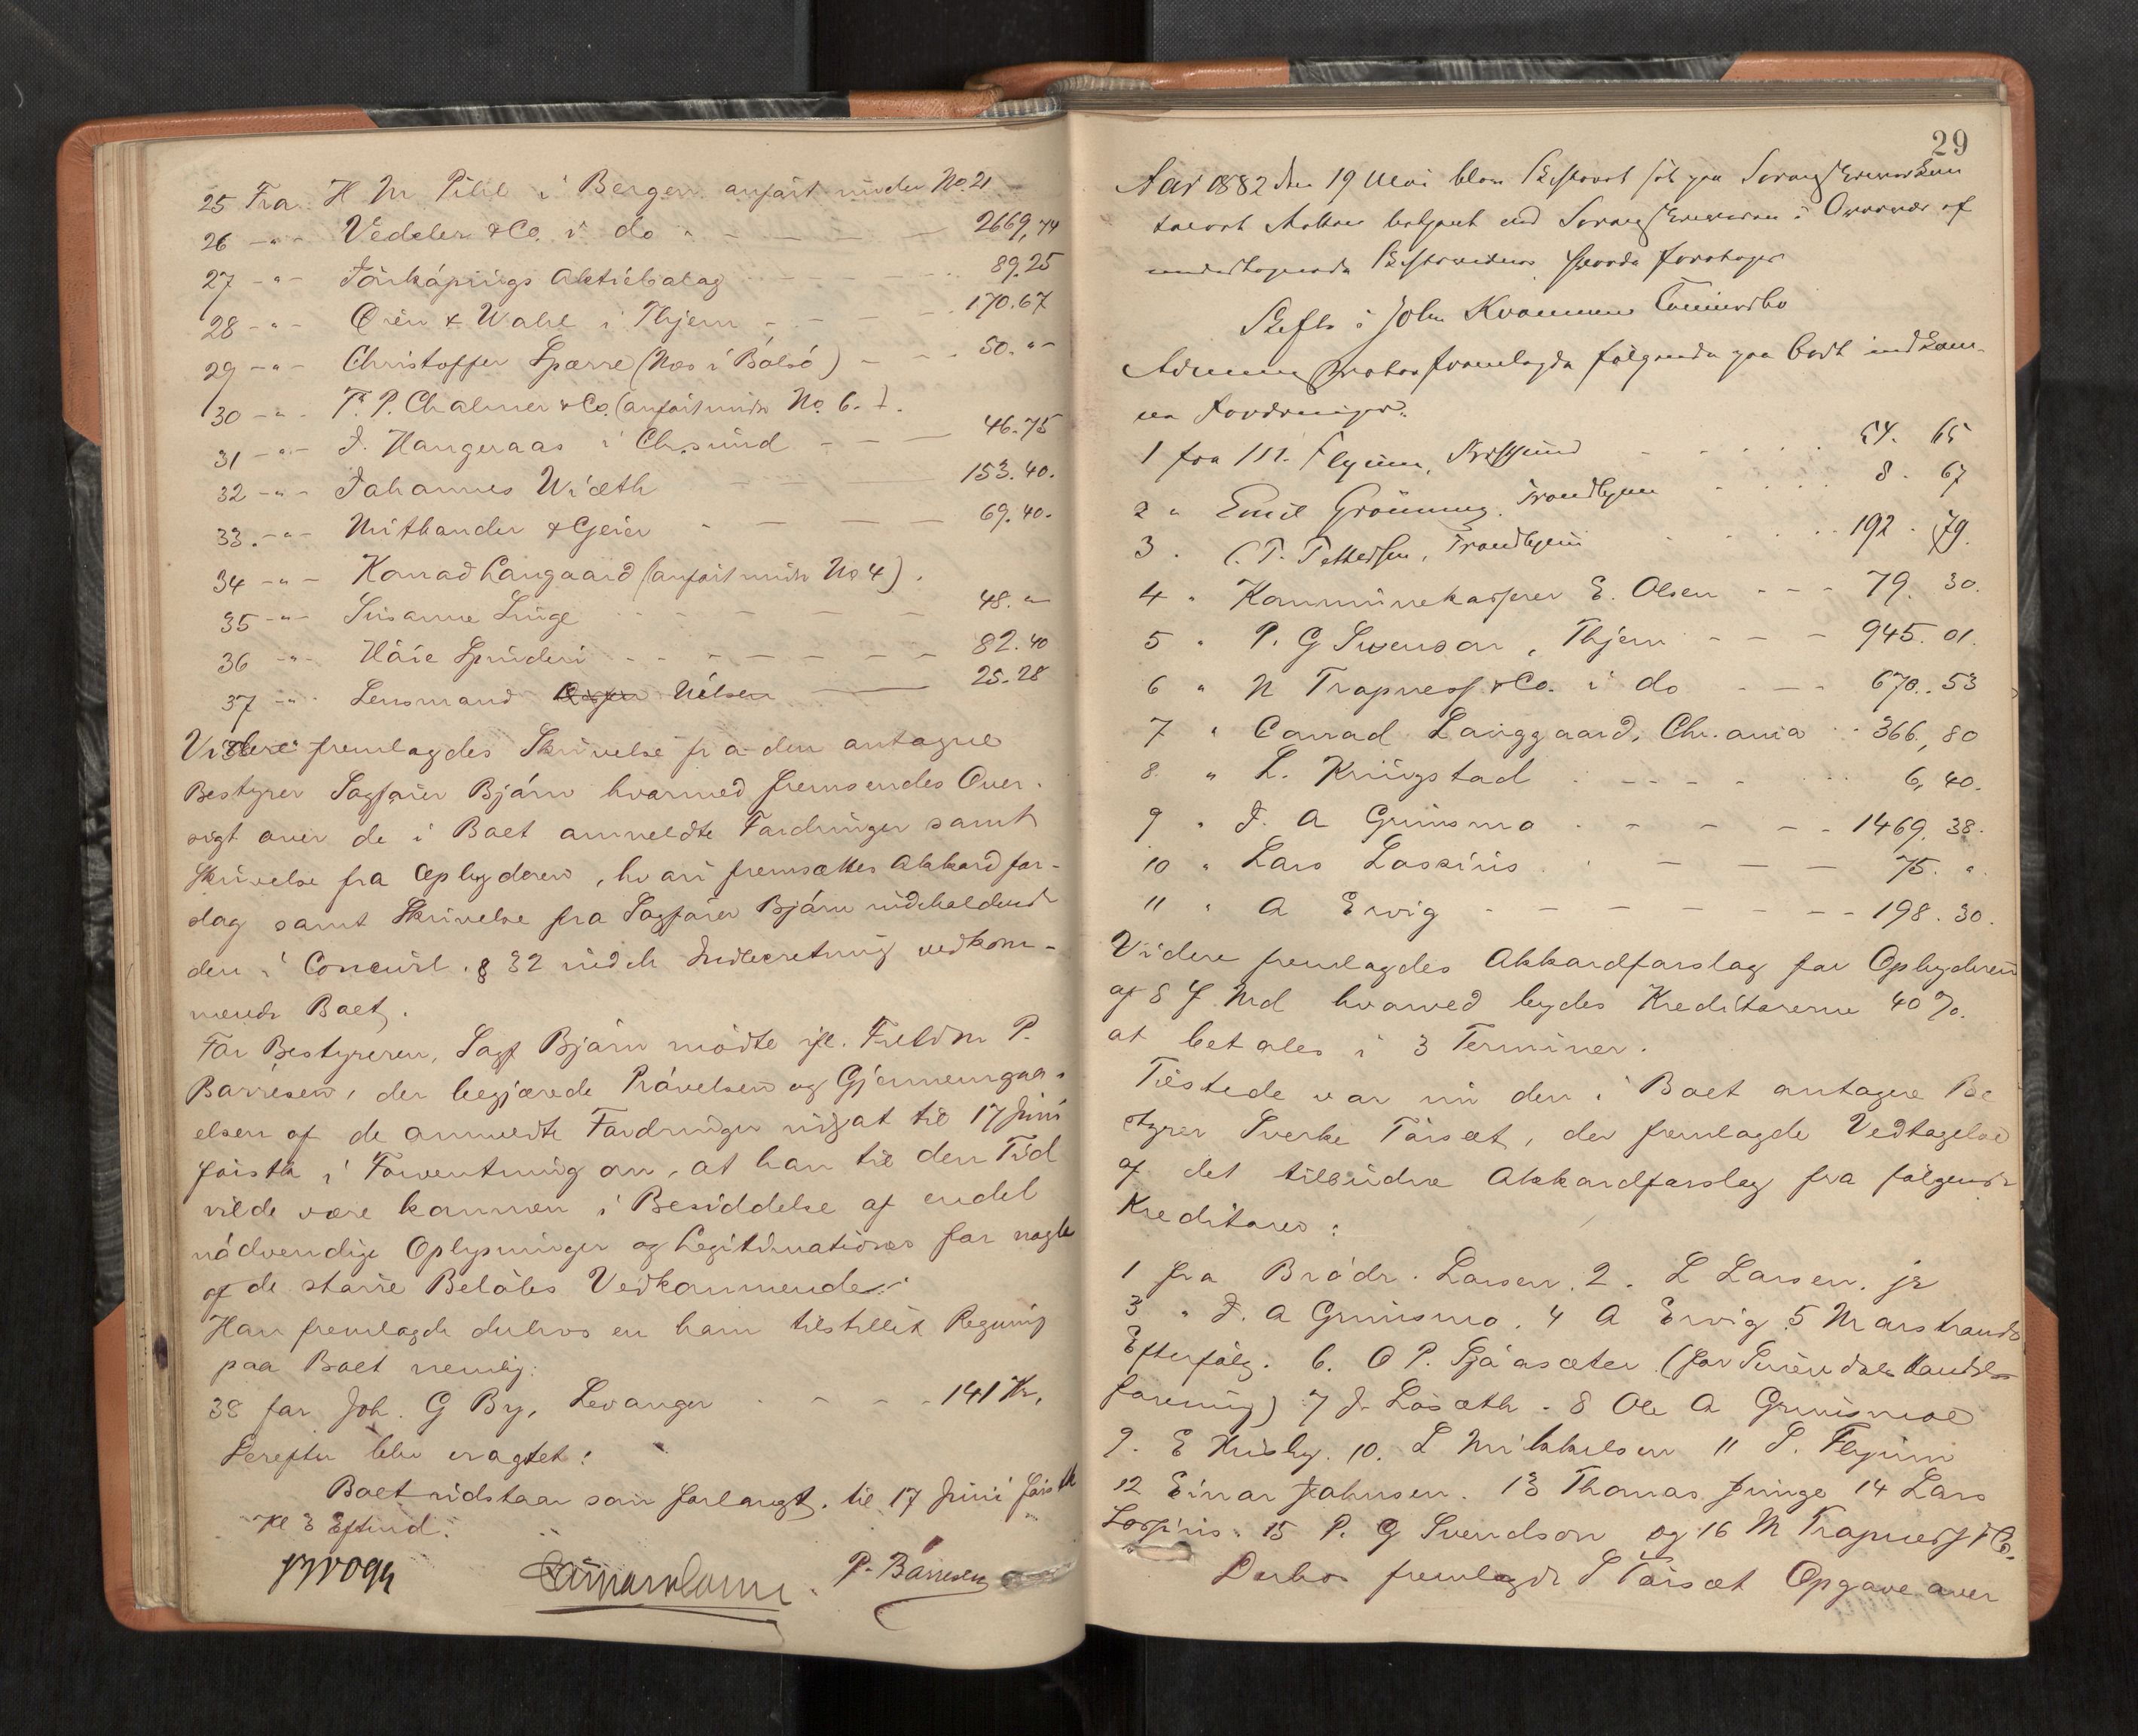 25 Fra H. M. Pihl i Bergen anfört under No. 21
26 -"- Vedeler & Co. i do 2669,74
27 -"- Jönköpings Aktiebolag 89.25
28 -"- Ören & Wahl i Thjem 170.67
29 -"- Christoffer Sparre (Næs i Bolsö) 50. "
30 -"- F. P. Chalmer & Co. (anfört under No. 6.)
31 -"- J. Hangeraas i Chr.sund 46.75
32 -"- Johannes Wiæth 153.40.
33 -"- Mithander & Geier 69.40.
34 -"- Konrad Langaard (anfört under No 4).
35 -"- Susanne Linge 48. "
36 -"- Höie Spinderi 82.40
37 -"- Lensmand Nilsen 25.28
Videre fremlagdes Skrivelse fra den antagne
Bestyrer Sagförer Björn hvormed fremsendes Over-
sigt over de i Boet anmeldte Fordringer samt
Skrivelse fra Opbyderen, hvori fremsættes Akkordfor-
slag samt Skrivelse fra Sagförer Björn indeholdende
den i Concursl. § 32 Indberetning vedkom-
mende Boet.
For Bestyreren, Sagf Björn mödte ifl. Fuldm P.
Barresen, der begjærede Prövelsen og Gjennemgaa-
elsen af de anmeldte Fordringer udsat til 17 Juni
förstk i Forventning om, at han til den Tid
vilde være kommen i Besiddelse af endel
nödvendige Oplysninger og Legitimationer for nogle
af de större Belöbs Vedkommende.
Han fremlagde derhos en ham tilstillet Regning
paa Boet nemlig:
38 for Joh. G By, Levanger 141 Kr.
Derefter blev eragtet:
Boet udstaar som forlangt til 17 Juni förstk
Kl 3 Eftmd.
P. Barresen
29
Aar 1882 den 19 Mai blev Skifteret sat paa Sorenskriverkon
toret betjent ved Sorenskriveren i Overvær af
undertegnede Skiftevidner. Hvorda foretoges
Skifte i John Kvammens
Administrator fremlagde fölgende paa Boet indkom-
ne Fordringer.
1 fra M. Flyum, Christsund 54. 65
2 " Emil Grönning. Trondhjem 8. 67
3 . C. T. Pettersen, Trondhjem 192. 79.
4 " Kommunekasserer E. Olsen 79. 30.
5 " P. G Svenson, Thjem 945. 01.
6 " N Trapness & Co. i do 670. 53
7 " Conrad Langgaard, Chr.ania 366, 80
8. " L. Kringstad 6, 40.
9 " J. A Grimsmo 1469. 38.
10 " Lars Lossius 75. "
11 " A Ervig 198. 30.
Videre fremlagdes Akkordforslag for Opbyderen
af 8 d. Md hvorved bydes Kreditorerne 40%.
at betales i 3 Terminer.
Tilstede var nu den i Boet antagne Be
styrer Sverke Törset, der fremlagde Vedtagelse
af det tilbudne Akkordforslag fra fölgende
Kreditorer:
1 fra Brödr. Larsen. 2. L Larsen. jr
3 " J. A Grimsmo. 4 A Ervig 5 Marstrands
Efterfölg. 6. O P. Sjöasæter (for Surendals Handels
forening) 7 J. Löseth. 8 Ole A Grimsmoe
9. E Husby. 10. L Mikkelsen 11 S. Flyum
12 Einar Johnsen. 13 Thomas Junge 14 Lars
Lossius. 15 P. G Svendson og 16 M Trapness & Co.
Derhos fremlagde S Törset Opgave over